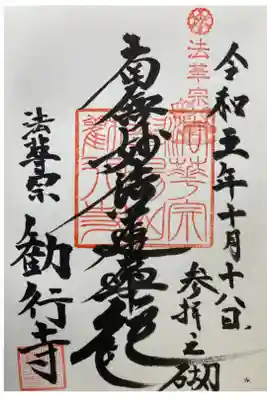 法華宗
令和五年十月十八日
参拝之砌
南無妙法蓮華経
法華宗
勧行寺